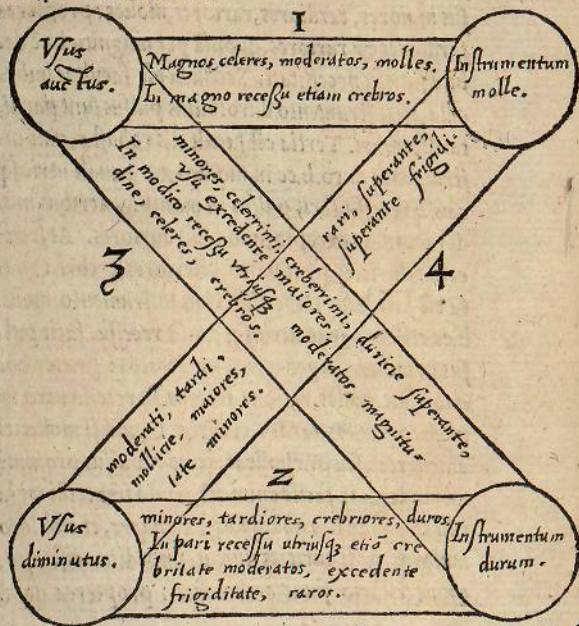 1
Vsus
auctus.
Magnos celeres, moderatos, molles.
In magno recessu etiam crebros.
Instrumentum
molle.
3
4
minores, celerrimi, creberrimi, duricie superante,
Vsu excedente maiores,
In modico recessu vtriusqꝫ moderatos magnitu-
dines celeres, crebros.
rari, superante,
superante frigidi-
moderati, tardi,
mollicie, maiores,
tate minores.
2
Vsus
diminutus.
minores, tardiores, crebriores, duros.
In pari recessu vtriusqꝫ etiō cre
britate moderatos, excedente
frigiditate, raros.
Instrumentum
durum.